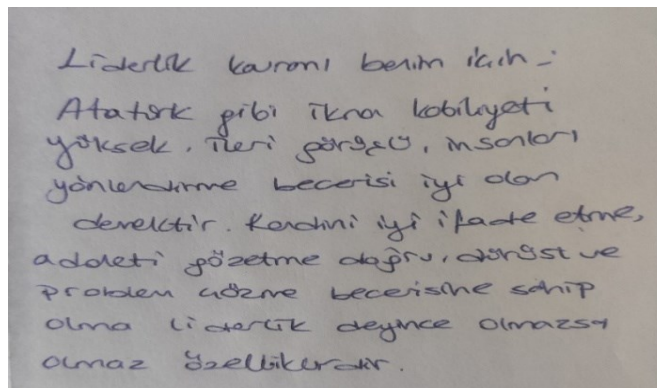 Liderlik kavramı benim için -:
Atatürk gibi ikna kabiliyeti
yüksek, ileri görüşlü, insanları
yönlendirme becerisi iyi olan
demektir. Kendini iyi ifade etme,
adaleti gözetme doğru, dürüst ve
problem çözme becerisine sahip
olma liderlik deyince olmazsa
olmaz özelliklerdir.